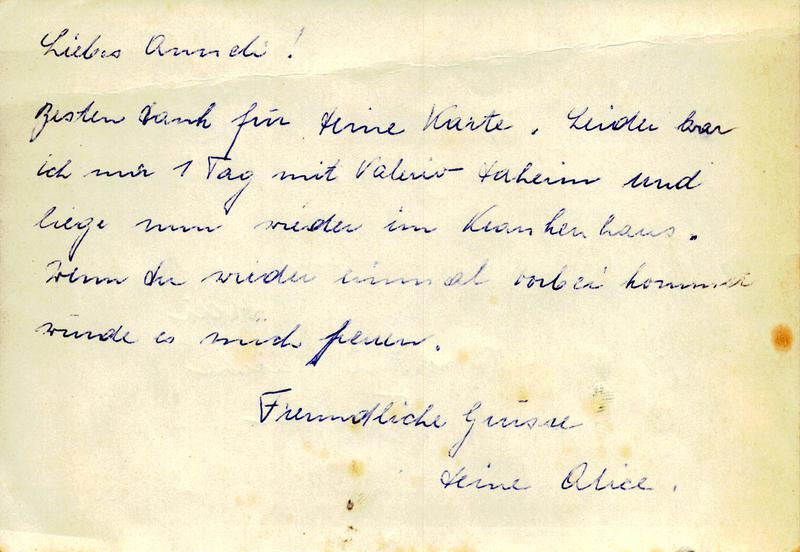 Liebes Anneli!
Besten Dank für deine Karte. Leider war
ich nur 1 Tag mit Valerio daheim und
liege nun wieder im Krankenhaus.
Wenn du wieder einmal vorbei kommst
würde es mich freuen.
Freundliche Grüsse
deine Alice.